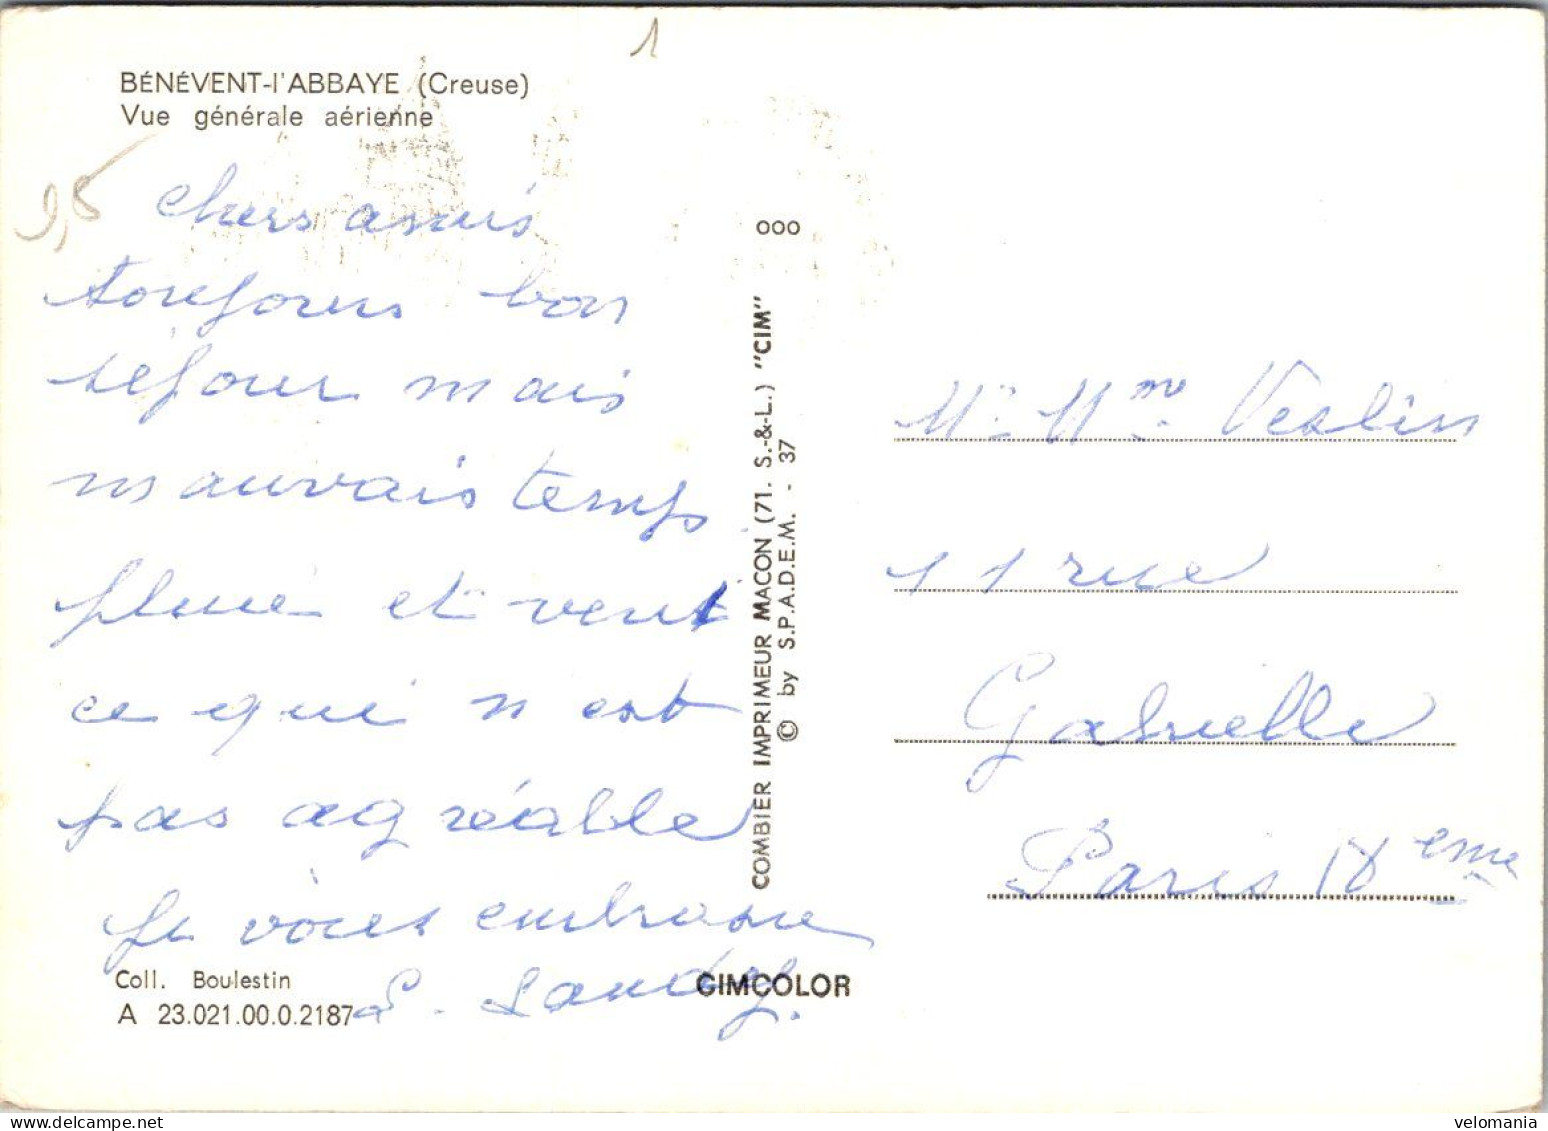 1
BÉNÉVENT-l'ABBAYE (Creuse)
Vue générale aérienne
chers amis
toujours bon
séjour mais
mauvais temps
pluie et vent
ce qui n est
pas agréable
Je vous embrasse
Coll. Boulestin
A 23.021.00.0.2187
CIMCOLOR
ooo
COMBIER IMPRIMEUR MACON (71. S.-&-L.) "CIM"
© by S.P.A.D.E.M. - 37
Mr Mme Veslin
11 rue
Gabrielle
Paris 18 eme
velomania